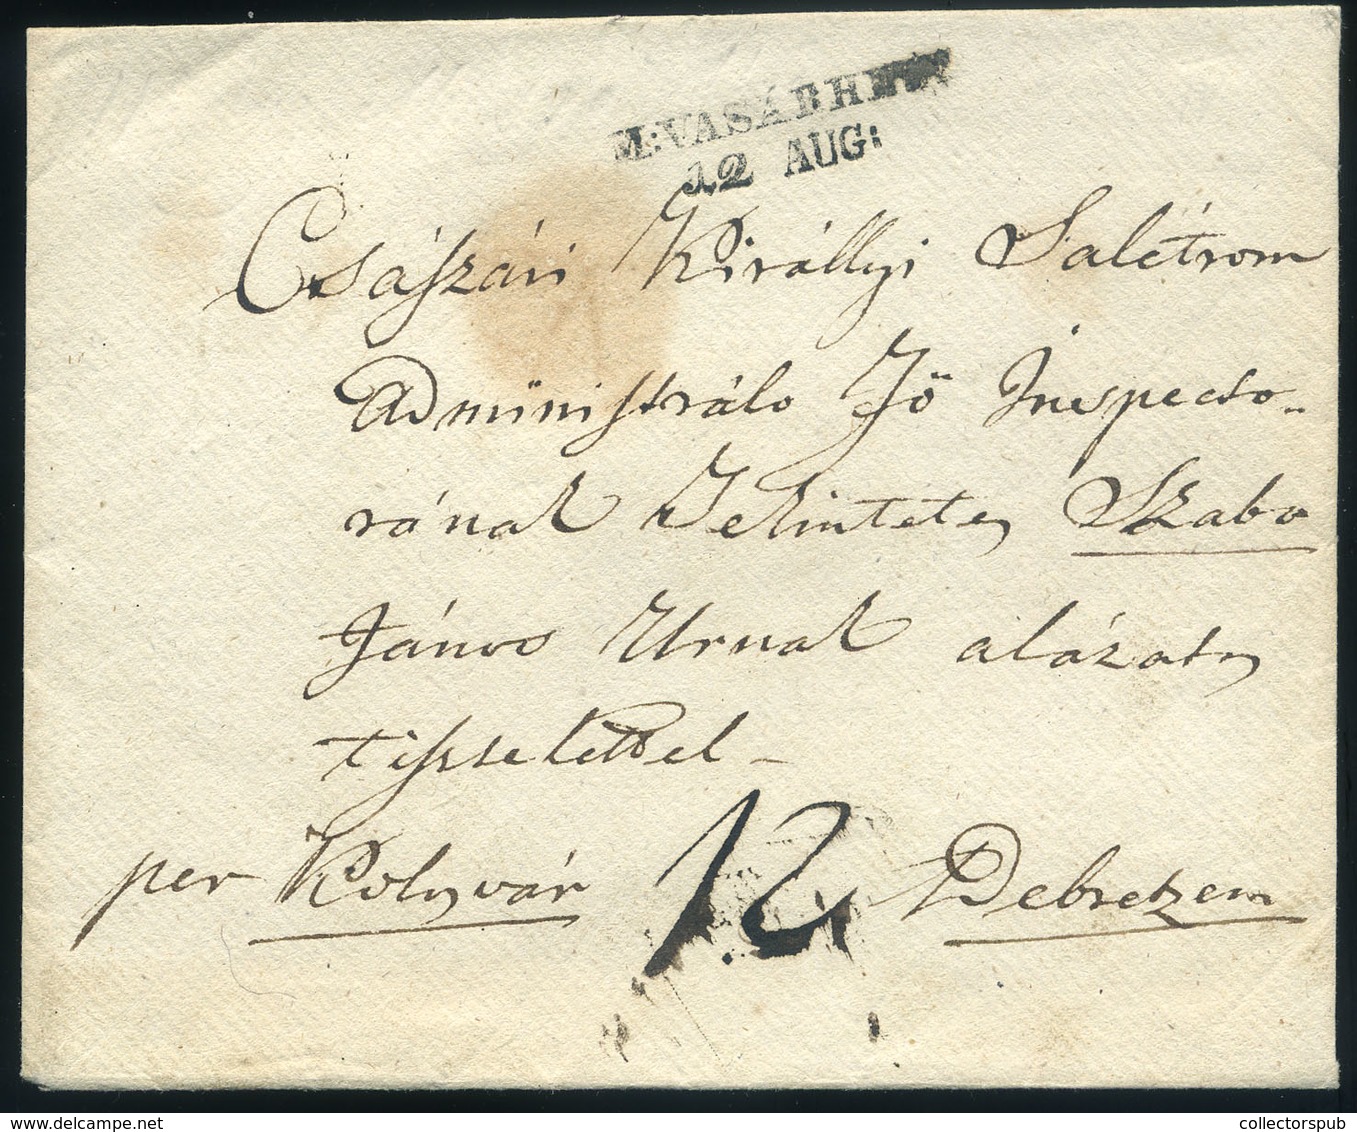 M:VÁSÁRHELY
12 AUG:
Császári Királlyi Salétrom
Administráló Fő Inspecto-
rának Tekintetes Szabo
János Urnak alázatos
tisztelettel
per Kolosvár 12 Debretzen
www.delcampe.net
collectorspub